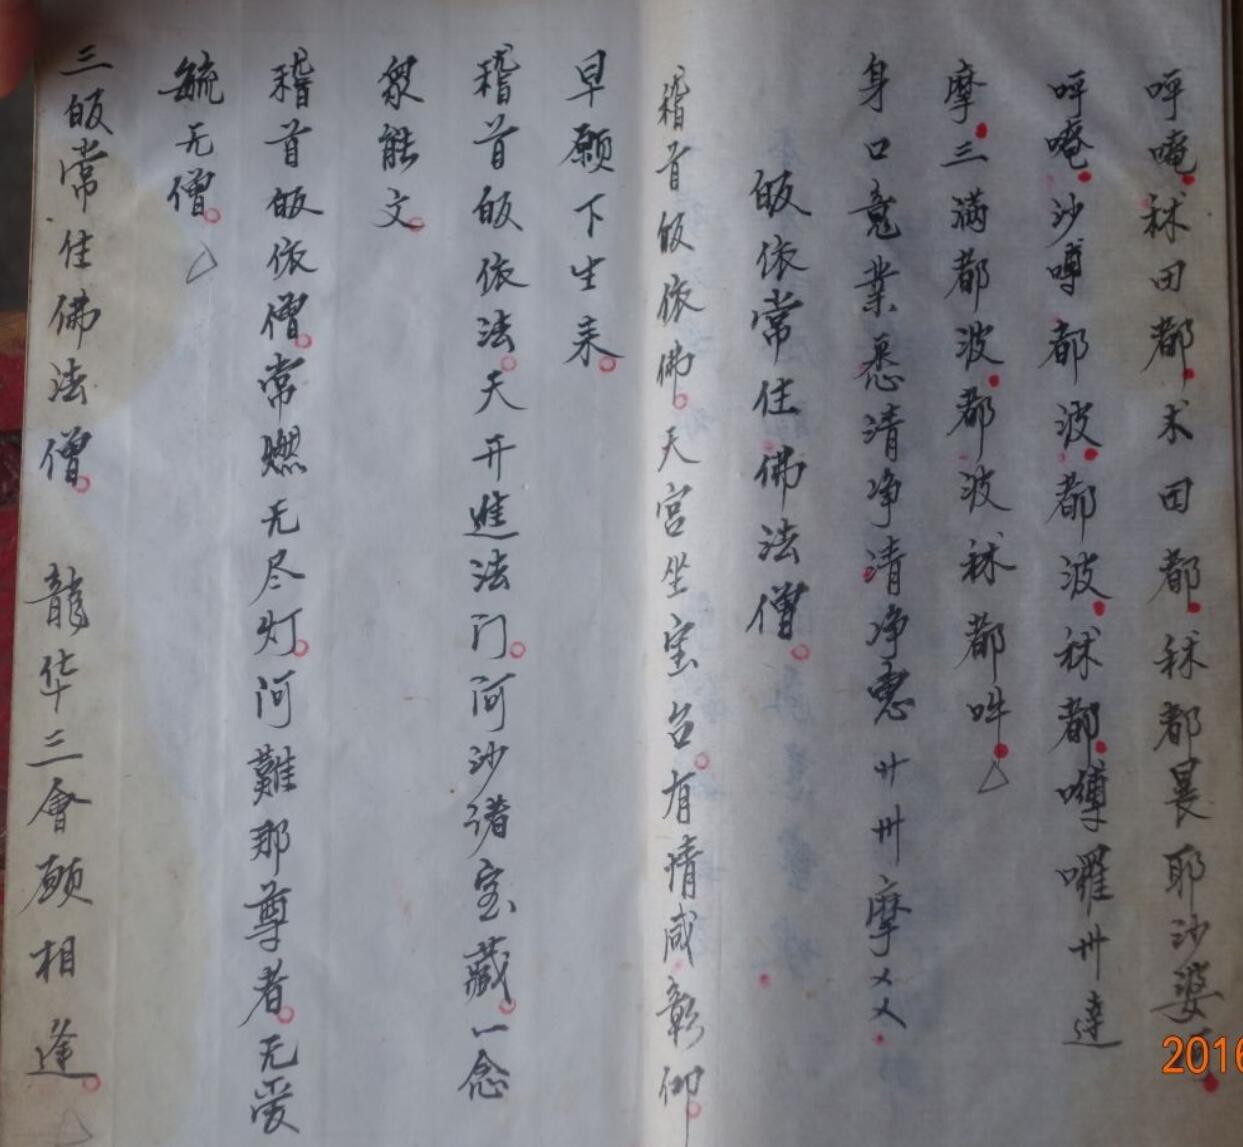 呼唵秫田都木田都秫都晨耶沙婆
呼唵沙嚩都波都波秫都嚩囉卅達
摩三满都波都波秫都吽
身口意業悉清净清净
廿卅摩
皈依常住佛法僧
稽首皈依佛天宫坐宝台有情咸彰仰
早願下生来
稽首皈依法天开進法门河沙诸宝藏一念
衆能文
稽首皈依僧常燃无尽灯阿難那尊者无爱
毓无僧
三皈常住佛法僧 龍华三會願相逢
2016